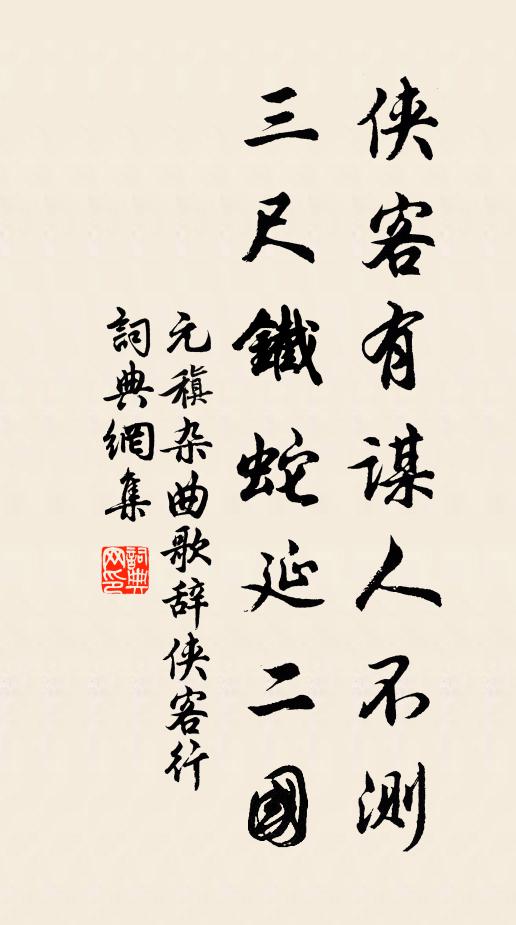 侠客有谋人不测
三尺鐵蛇延二國
元稹杂曲歌辞侠客行
詞典網集
詞典网印